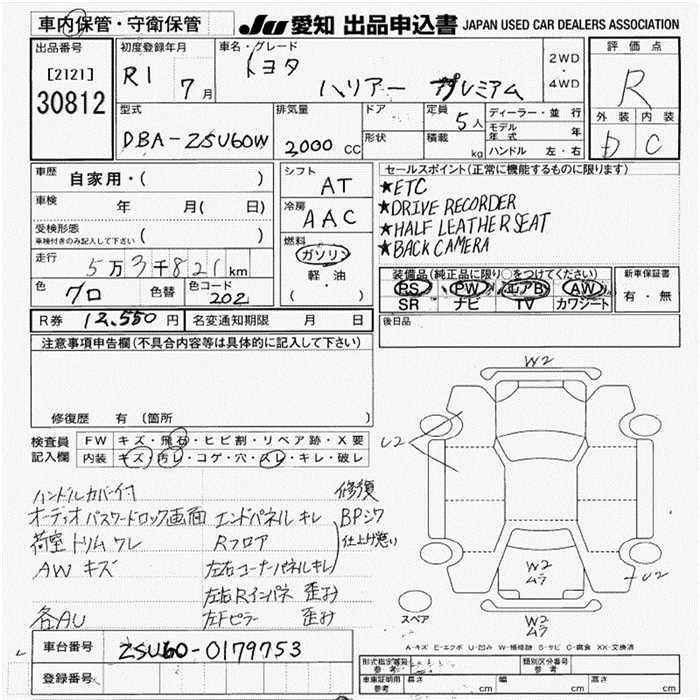 車内保管・守衛保管 JU 愛知 出品申込書 JAPAN USED CAR DEALERS ASSOCIATION
出品番号
[2121]
30812
初度登録年月
R1 7月
車名・グレード
トヨタ
ハリアー プレミアム
2WD
・
4WD
評価点
R
外装 内装
D C
型式
DBA-ZSU60W
排気量
2000 CC
ドア
形状
定員 5人
積載 kg
ディーラー・並行
モデル年式 年
ハンドル 左・右
車歴 自家用・( )
車検 年 月( 日)
受検形態
車検付きのみ記入して下さい ( )
走行 5万3千821km
色 クロ 色替 色コード 202
シフト AT
冷房 AAC
燃料
ガソリン
軽・油
( )
セールスポイント(正常に機能するものに限ります)
★ETC
★DRIVE RECORDER
★HALF LEATHER SEAT
★BACK CAMERA
装備品(純正品に限り○をつけてください)
RS PW エアB AW
SR ナビ TV カワシート
新車保証書
有・無
R券 12,550円 名変通知期限 月 日
後日品
注意事項申告欄(不具合内容等は具体的に記入して下さい)
修復歴 有(箇所
検査員記入欄
FW キズ・飛石・ヒビ割・リペア跡・X要
内装 キズ・汚レ・コゲ・穴・スレ・キレ・破レ
ハンドルカバー付 修復
オーディオパスワードロック画面 エンドパネル キレ BPシワ
荷室トリム ワレ Rフロア 仕上げ悪い
AW キズ 左右コーナーパネルキレ
左右Rインパネ 歪み
各AU 左Fピラー 歪み
W2
U2
W2
ムラ
U2
W2
ムラ
スペア
A-キズ E-エクボ U-凹み W-補修跡 S-サビ C-腐食 XX-交換済
車台番号 ZSU60-0179753
登録番号
形式指定番号
参考
類別区分番号
参考
車庫証明用
参考
長さ cm 幅 cm 高さ cm